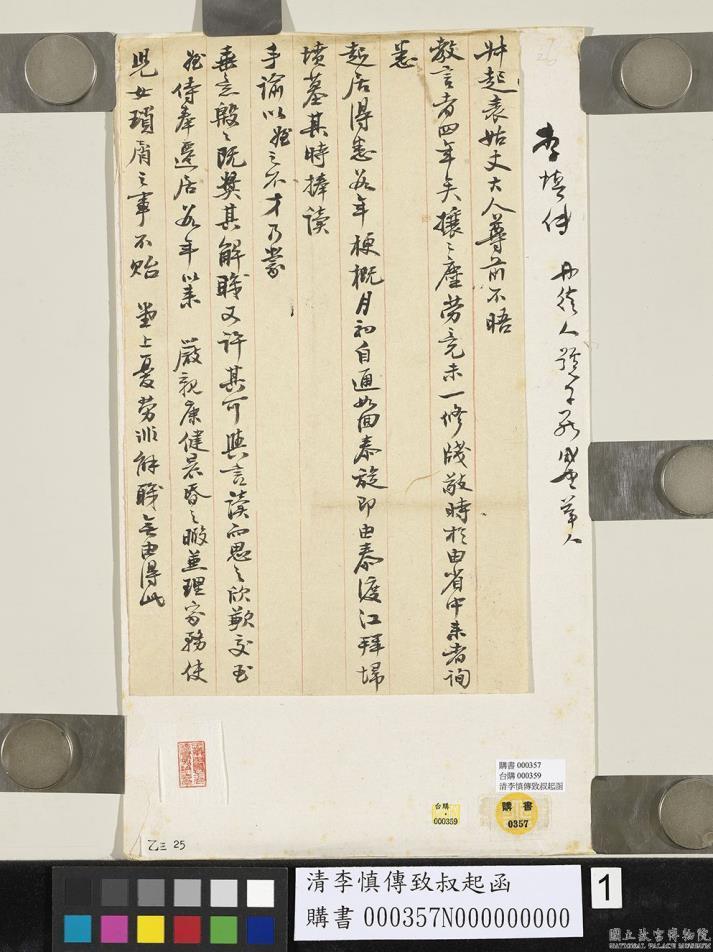 叔起表姑丈大人尊前不晤
教言者四年矣攘々塵勞竟未一修牋敬時於由省中來者詢
悉
起居得悉前年梗概月初自通如回泰旋即由泰渡江拜埽
墳墓其時捧讀
手諭以姪之不才乃蒙
垂意殷々既獎其解職又許其可與言讀而思之欣歉交至
姪侍奉還居前年以來 嚴親康健晨昏之暇並理家務使
兒女瑣屑之事不貽 堂上憂勞非解職無由得此
丹徒人
乙三 25
購書 000357
台購 000359
清李慎傳致叔起函
台購
000359
購書
0357
清李慎傳致叔起函
購書 000357N000000000
1
國立故宮博物院
NATIONAL PALACE MUSEUM